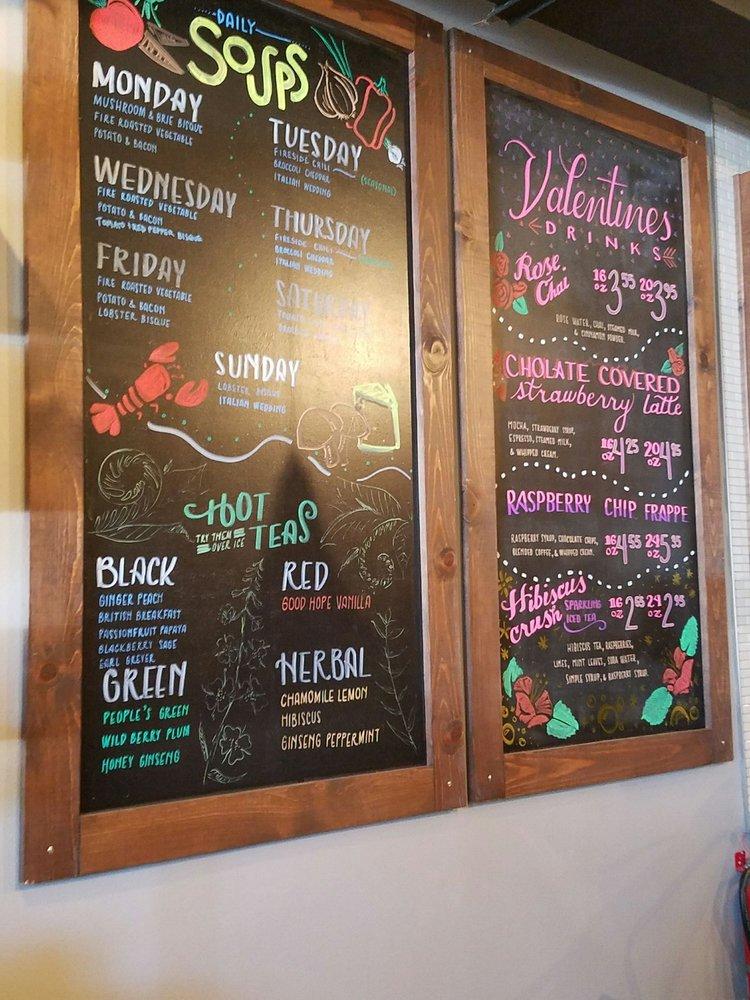 DAILY
SOUPS
MONDAY
MUSHROOM & BRIE BISQUE
FIRE ROASTED VEGETABLE
POTATO & BACON
TUESDAY
FIRESIDE CHILI
BROCCOLI CHEDDAR (SEASONAL)
ITALIAN WEDDING
WEDNESDAY
FIRE ROASTED VEGETABLE
POTATO & BACON
TOMATO & RED PEPPER BISQUE
THURSDAY
FIRESIDE CHILI
BROCCOLI CHEDDAR
ITALIAN WEDDING
FRIDAY
FIRE ROASTED VEGETABLE
POTATO & BACON
LOBSTER BISQUE
SATURDAY
SUNDAY
LOBSTER BISQUE
ITALIAN WEDDING
HOT
TEAS
TRY THEM
OVER ICE
BLACK
GINGER PEACH
BRITISH BREAKFAST
PASSIONFRUIT PAPAYA
BLACKBERRY SAGE
EARL GREYER
RED
GOOD HOPE VANILLA
GREEN
PEOPLE'S GREEN
WILD BERRY PLUM
HONEY GINSENG
HERBAL
CHAMOMILE LEMON
HIBISCUS
GINSENG PEPPERMINT
Valentines
DRINKS
Rose Chai 16 oz 3 55 20 oz 3 95
ROSE WATER, CHAI, STEAMED MILK,
& CINNAMON POWDER.
CHOLATE COVERED
strawberry latte
MOCHA, STRAWBERRY SYRUP,
ESPRESSO, STEAMED MILK,
& WHIPPED CREAM.
16 oz 4 25 20 oz 4 75
RASPBERRY CHIP FRAPPE
RASPBERRY SYRUP, CHOCOLATE CHIPS,
BLENDED COFFEE, & WHIPPED CREAM.
16 oz 4 55 24 oz 5 35
Hibiscus
crush SPARKLING
ICED TEA
16 oz 2 65 24 oz 2 95
HIBISCUS TEA, RASPBERRIES,
LIMES, MINT LEAVES, SODA WATER,
SIMPLE SYRUP, & RASPBERRY SYRUP.